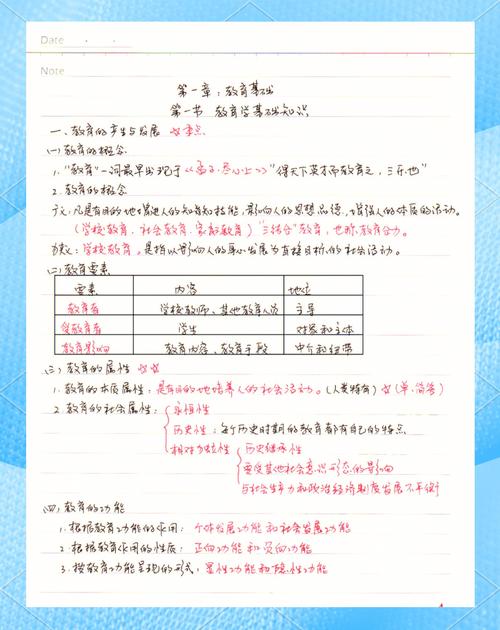 Date
Note
第一章：教育基础
第一节 教育学基础知识
一、教育的产生与发展 ☆重点
(一)教育的概念
1."教育"一词最早出现于《孟子·尽心上》"得天下英才而教育之，三乐也"
2.教育的概念
广义：凡是有目的地增进人的知识技能，影响人的思想品德，增强人的体质的活动。
(学校教育、社会教育、家庭教育)"三结合"教育，也称教育合力。
狭义：学校教育，是指以影响人的身心发展为直接目标的社会活动。
(二)教育要素
要素 内容 地位
教育者 学校教师、其他教育人员 主导
受教育者 学生 对象和主体
教育影响 教育内容、教育手段 中介和纽带
(三)教育的属性 ☆☆
1.教育的本质属性：是有目的地培养人的社会活动。(人类特有) ☆(单.简答)
2.教育的社会属性：永恒性
历史性：每个历史时期的教育都有自己的特点
相对独立性 历史继承性
要受其他社会意识形态的影响
与社会生产力和政治经济制度发展不平衡
(四)教育的功能
1.根据教育功能的作用：个体发展功能和社会发展功能
2.根据教育作用的性质：正向功能和负向功能
3.按教育功能呈现的形式：显性功能和隐性功能